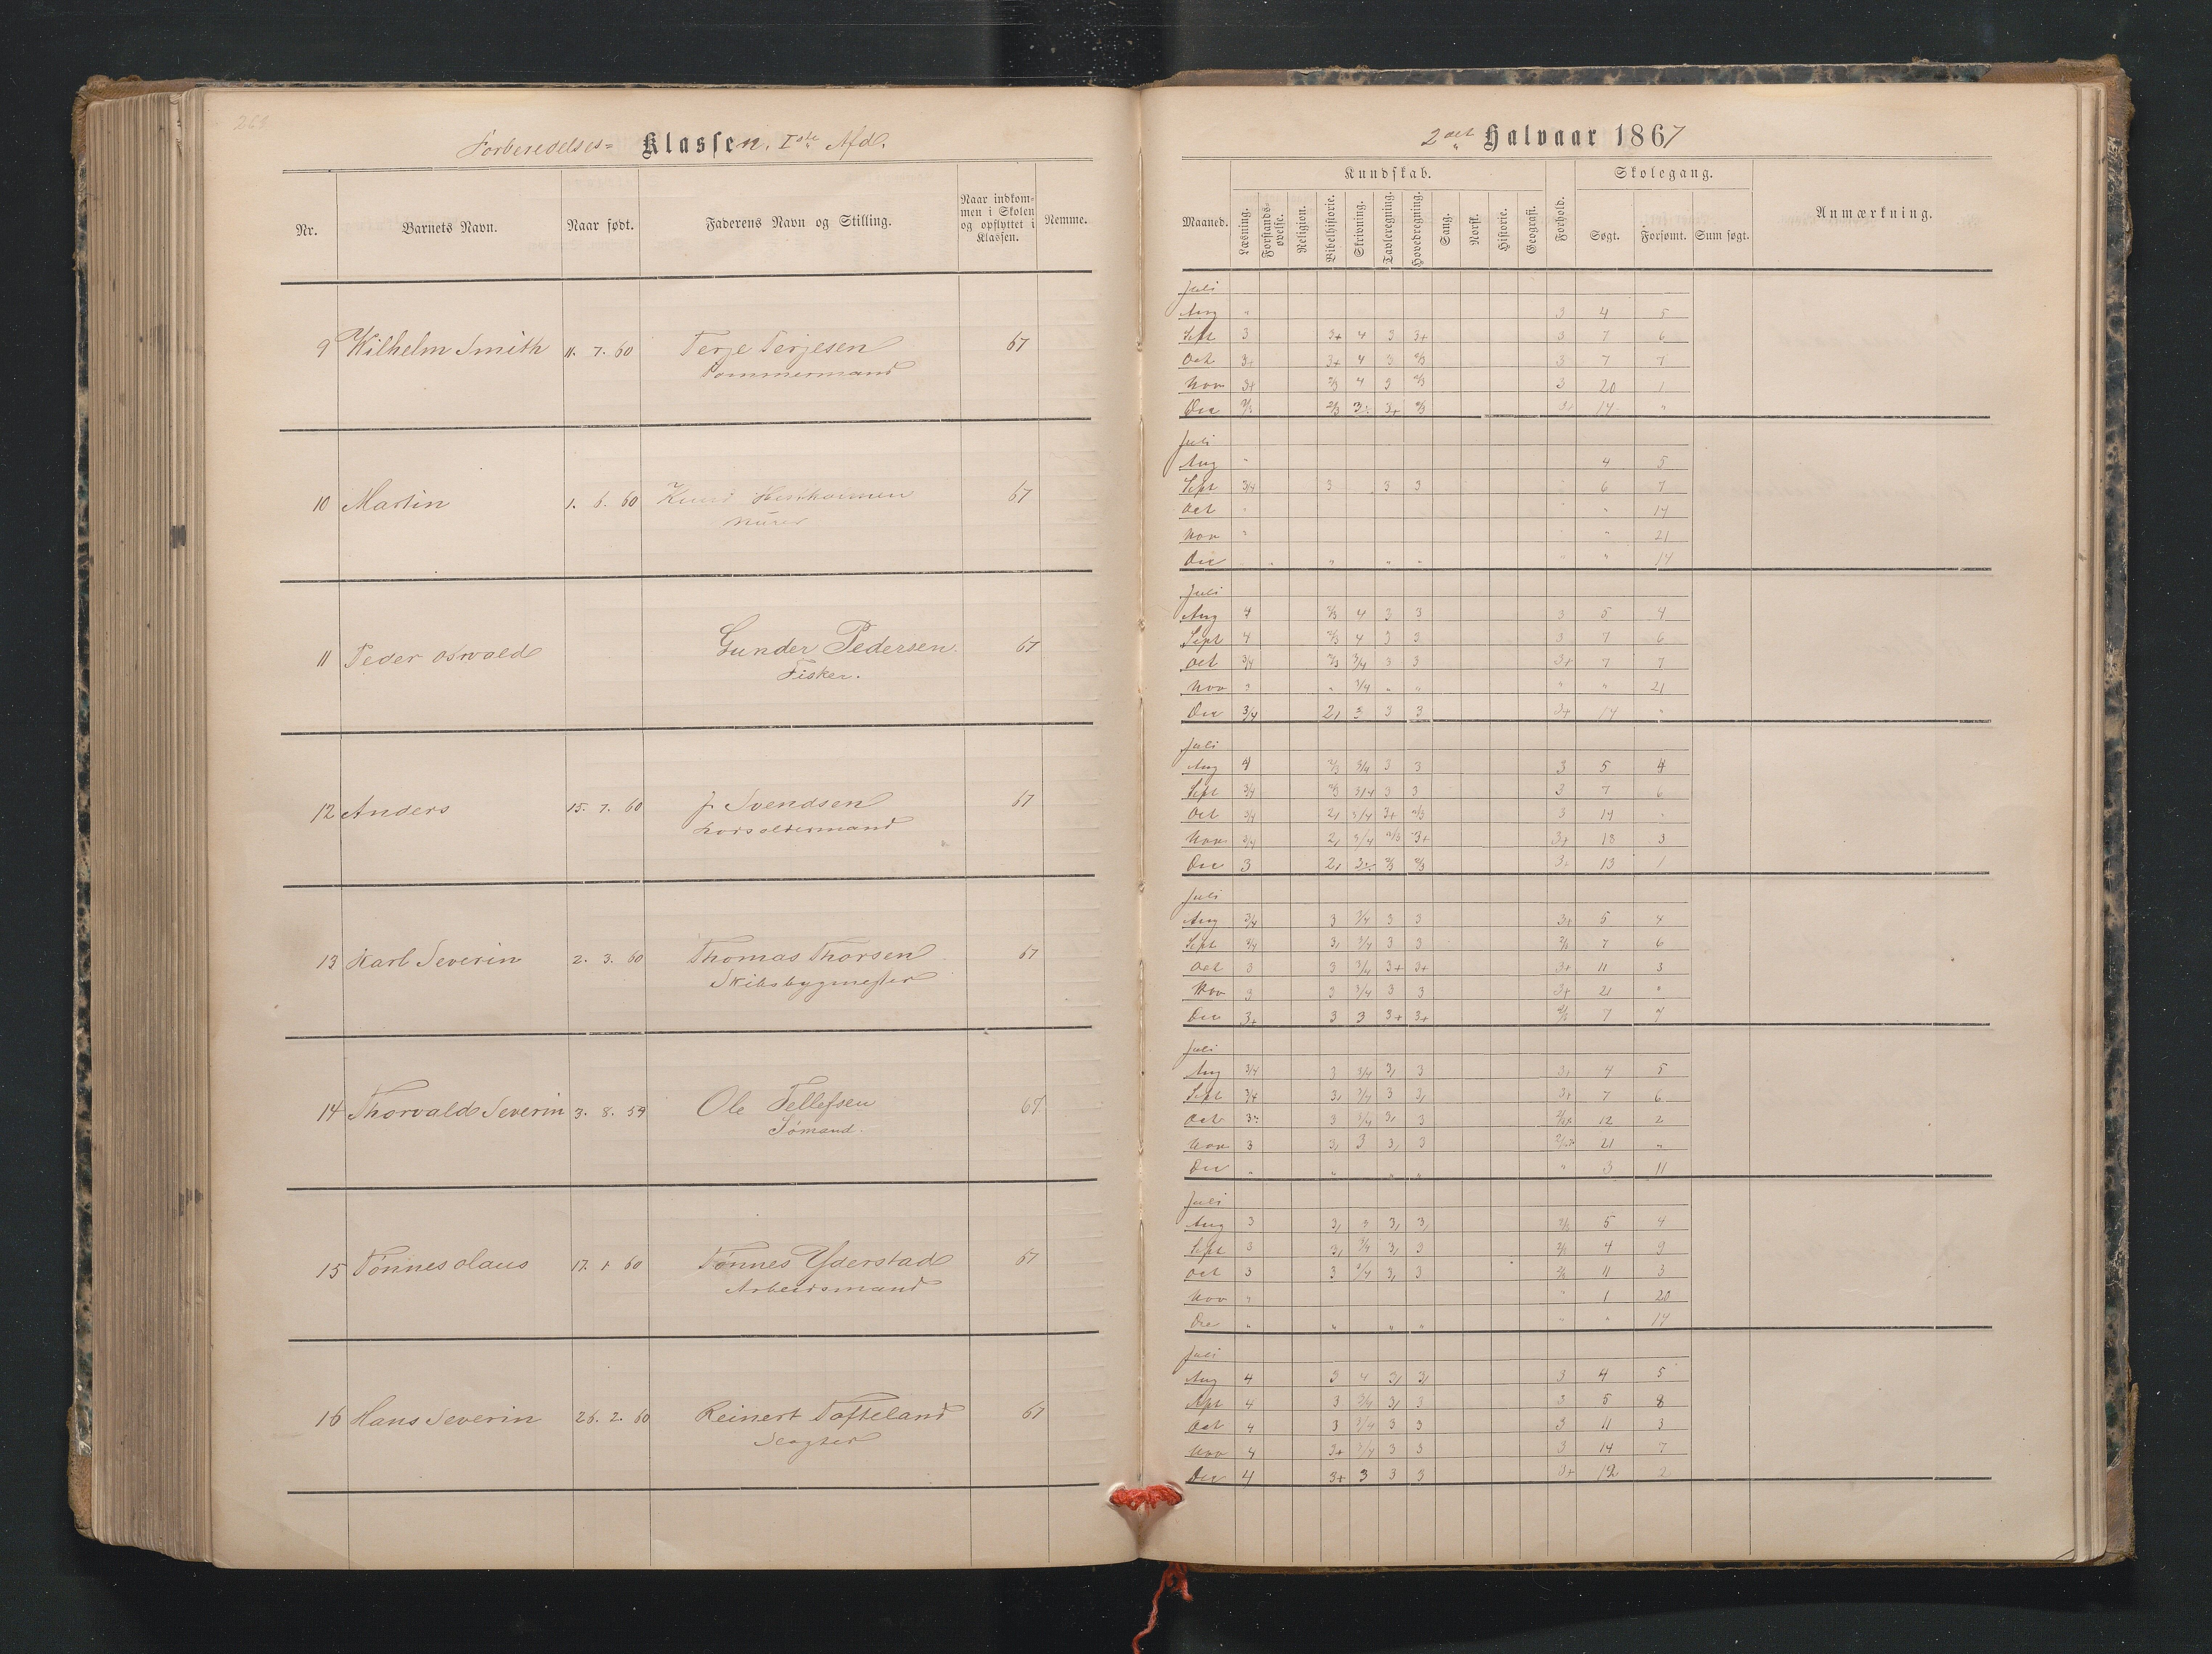 Forberedelses= Klassen. Iste Afd.
Nr. Barnets Navn. Naar født. Faderens Navn og Stilling. Naar indkommen i Skolen og opflyttet i Klassen. Nemme.
9 Wilhelm Smith 11. 7. 60 Terje Terjesen 67
Tømmermand
10 Martin 1. 6. 60 Knud 67
Murer
11 Peder Osvald Gunder Pedersen 67
Fisker.
12 Anders 15. 7. 60 J. Svendsen 67
Lodsoldermand
13 Karl Severin 2. 3. 60 Thomas Thorsen 67
Skibsbygmester
14 Thorvald Severin 3. 8. 59 Ole Tellefsen 67
Sømand.
15 Tønnes Olaus 17. 1. 60 Tønnes Yderstad 67
Arbeidsmand
16 Hans Severin 26. 2. 60 Reinert Tofteland 67
2det Halvaar 1867
Maaned. Kundskab. Skolegang. Anmærkning.
Læsning. Forstandsøvelse. Religion. Bibelhistorie. Skrivning. Tavleregning. Hovedregning. Sang. Norsk. Historie. Geografi. Forhold. Søgt. Forsømt. Sum søgt.
Juli
Aug " 3 4 5
Sept 3 3+ 4 3 3+ 3 7 6
Oct 3+ 3+ 4 3 2/3 3 7 7
Nov 3+ 2/3 4 3 2/3 3 20 1
Dec 2/3 3+ 2/3 14 "
Juli
Aug " 4 5
Sept 3/4 3 3 3 6 7
Oct " " 14
Nov " " 21
Dec " " " " " 14
Juli
Aug 4 2/3 4 3 3 3 5 4
Sept 4 2/3 4 3 3 3 7 6
Oct 3/4 2/3 3/4 3 3 3+ 7 7
Nov " 3/4 " " " " 21
Dec 3/4 2, 3 3 3 3+ 14 "
Juli
Aug 4 2/3 3/4 3 3 3 5 4
Sept 3/4 2/3 3/4 3 3 3 7 6
Oct 3/4 2, 3/4 3+ 2/3 3 14 "
Nov 3/4 2, 3/4 2/3 3+ 3+ 18 3
Dec 3 2, 2/3 2/3 3+ 13 1
Juli
Aug 3/4 3 3/4 3 3 3+ 5 4
Sept 3/4 3, 3/4 3 3 2/3 7 6
Oct 3 3 3/4 3+ 3+ 3+ 11 3
Nov 3 3 3/4 3 3 3+ 21 "
Dec 3+ 3 3 3+ 3+ 2/3 7 7
Juli
Aug 3/4 3 3/4 3, 3 3, 4 5
Sept 3/4 3, 3/4 3 3, 3+ 7 6
Oct 3 3/4 3, 3 12 2
Nov 3 3, 3 3, 3 21 "
Dec " " " " " 3 11
Juli
Aug 3 3, 3 3, 3, 2/3 5 4
Sept 3 3, 3/4 3, 3 2/3 4 9
Oct 3 3 3/4 3, 3 2/3 11 3
Nov " " 1 20
Dec " " " " " " 14
Juli
Aug 4 3 4 3, 3, 3 4 5
Sept 4 3 3/4 3, 3 3 5 8
Oct 4 3 3/4 3 3 3 11 3
Nov 4 3+ 3/4 3 3 3 14 7
Dec 4 3+ 3 3 3 3+ 12 2